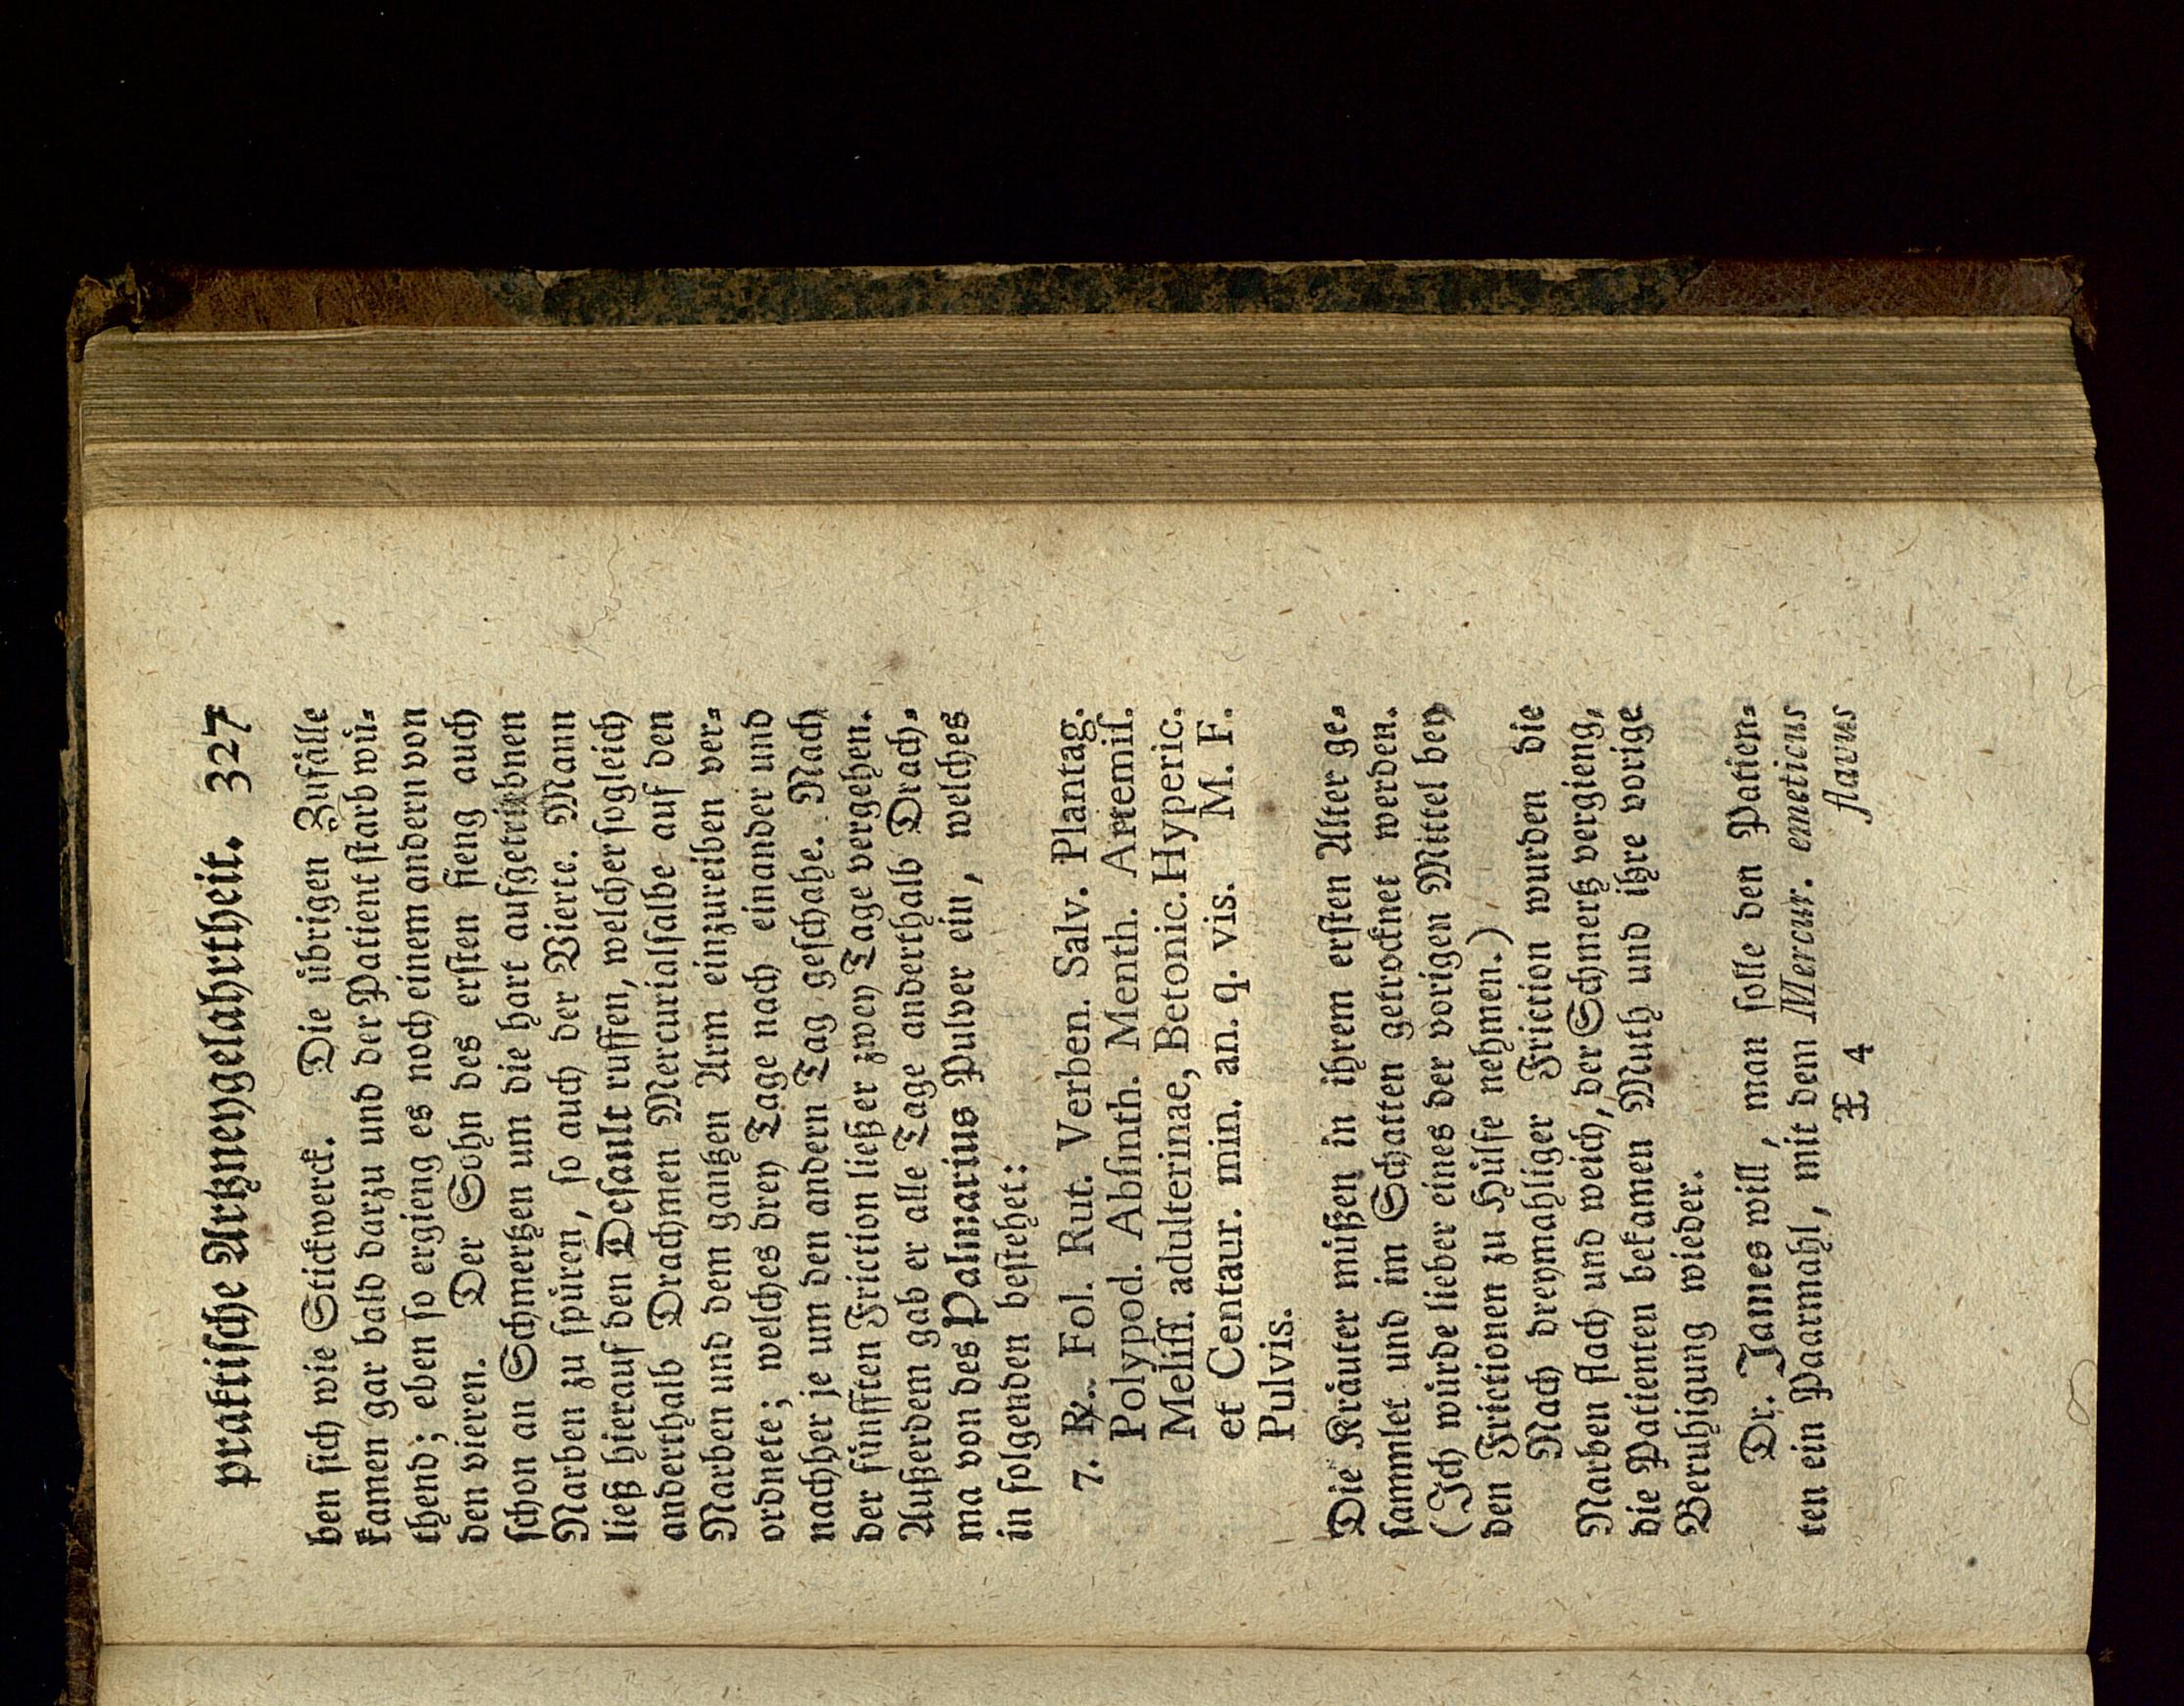 praktische Artzneygelahrtheit. 327
ben sich wie Stickwerck. Die übrigen Zufälle
kamen gar bald darzu und der Patient starb wü-
thend; eben so ergieng es noch einem andern von
den vieren. Der Sohn des ersten fieng auch
schon an Schmertzen um die hart aufgetribnen
Narben zu spüren, so auch der Vierte. Mann
ließ hierauf den Desault ruffen, welcher sogleich
anderthalb Drachmen Mercurialsalbe auf den
Narben und dem gantzen Arm einzureiben ver-
ordnete; welches drey Tage nach einander und
nachher je um den andern Tag geschahe. Nach
der fünfften Friction ließ er zwey Tage vergehen.
Außerdem gab er alle Tage anderthalb Drach-
ma von des Palmarius Pulver ein, welches
in folgenden bestehet:
7. ℞. Fol. Rut. Verben. Salv. Plantag.
Polypod. Absinth. Menth. Artemis.
Meliss. adulterinae, Betonic. Hyperic.
et Centaur. min. an. q. vis. M. F.
Pulvis.
Die Kräuter müßen in ihrem ersten Alter ge-
sammlet und im Schatten getrocknet werden.
(Ich würde lieber eines der vorigen Mittel bey
den Frictionen zu Hülfe nehmen.)
Nach dreymahliger Friction wurden die
Narben flach und weich, der Schmertz vergieng,
die Patienten bekamen Muth und ihre vorige
Beruhigung wieder.
Dr. James will, man solle den Patien-
ten ein Paarmahl, mit dem Mercur. emeticus
X 4 flavus